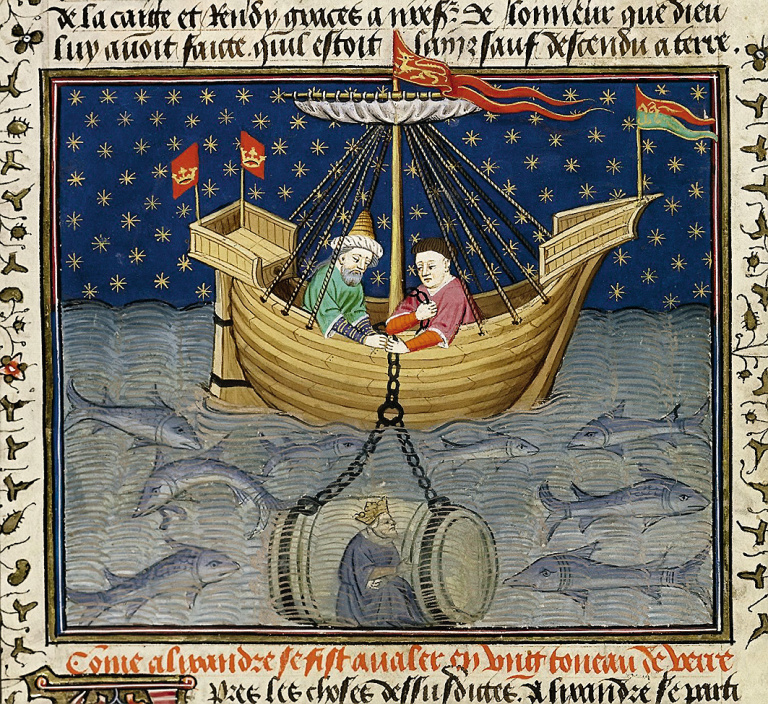 de la caige et rendy graces a nres: de lonneur que dieu
luy auoit faicte quil estoit sainz sauf descendu a terre.
Cōme alixandre se fist aualer en vng toneau de verre
pres les choses dessusdictes. Alixandre se parti